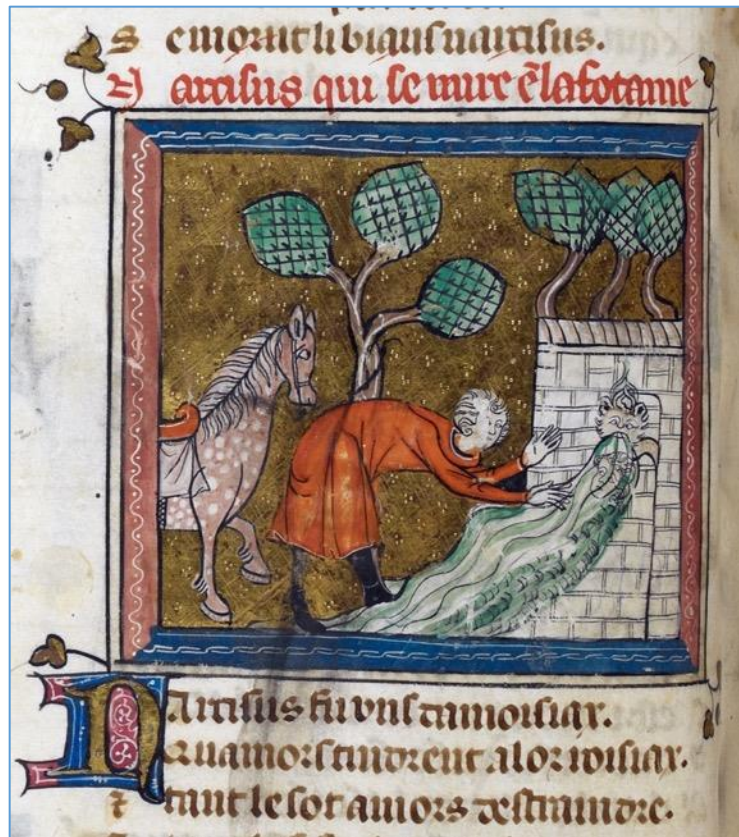 S e morit li biaus narcisus.
N arcisus qui se mire ē la fōtaine
Narcisus fu uns damoisiax.
Qu amors tindrent a lor roisiax.
E tant le sot amors destraindre.